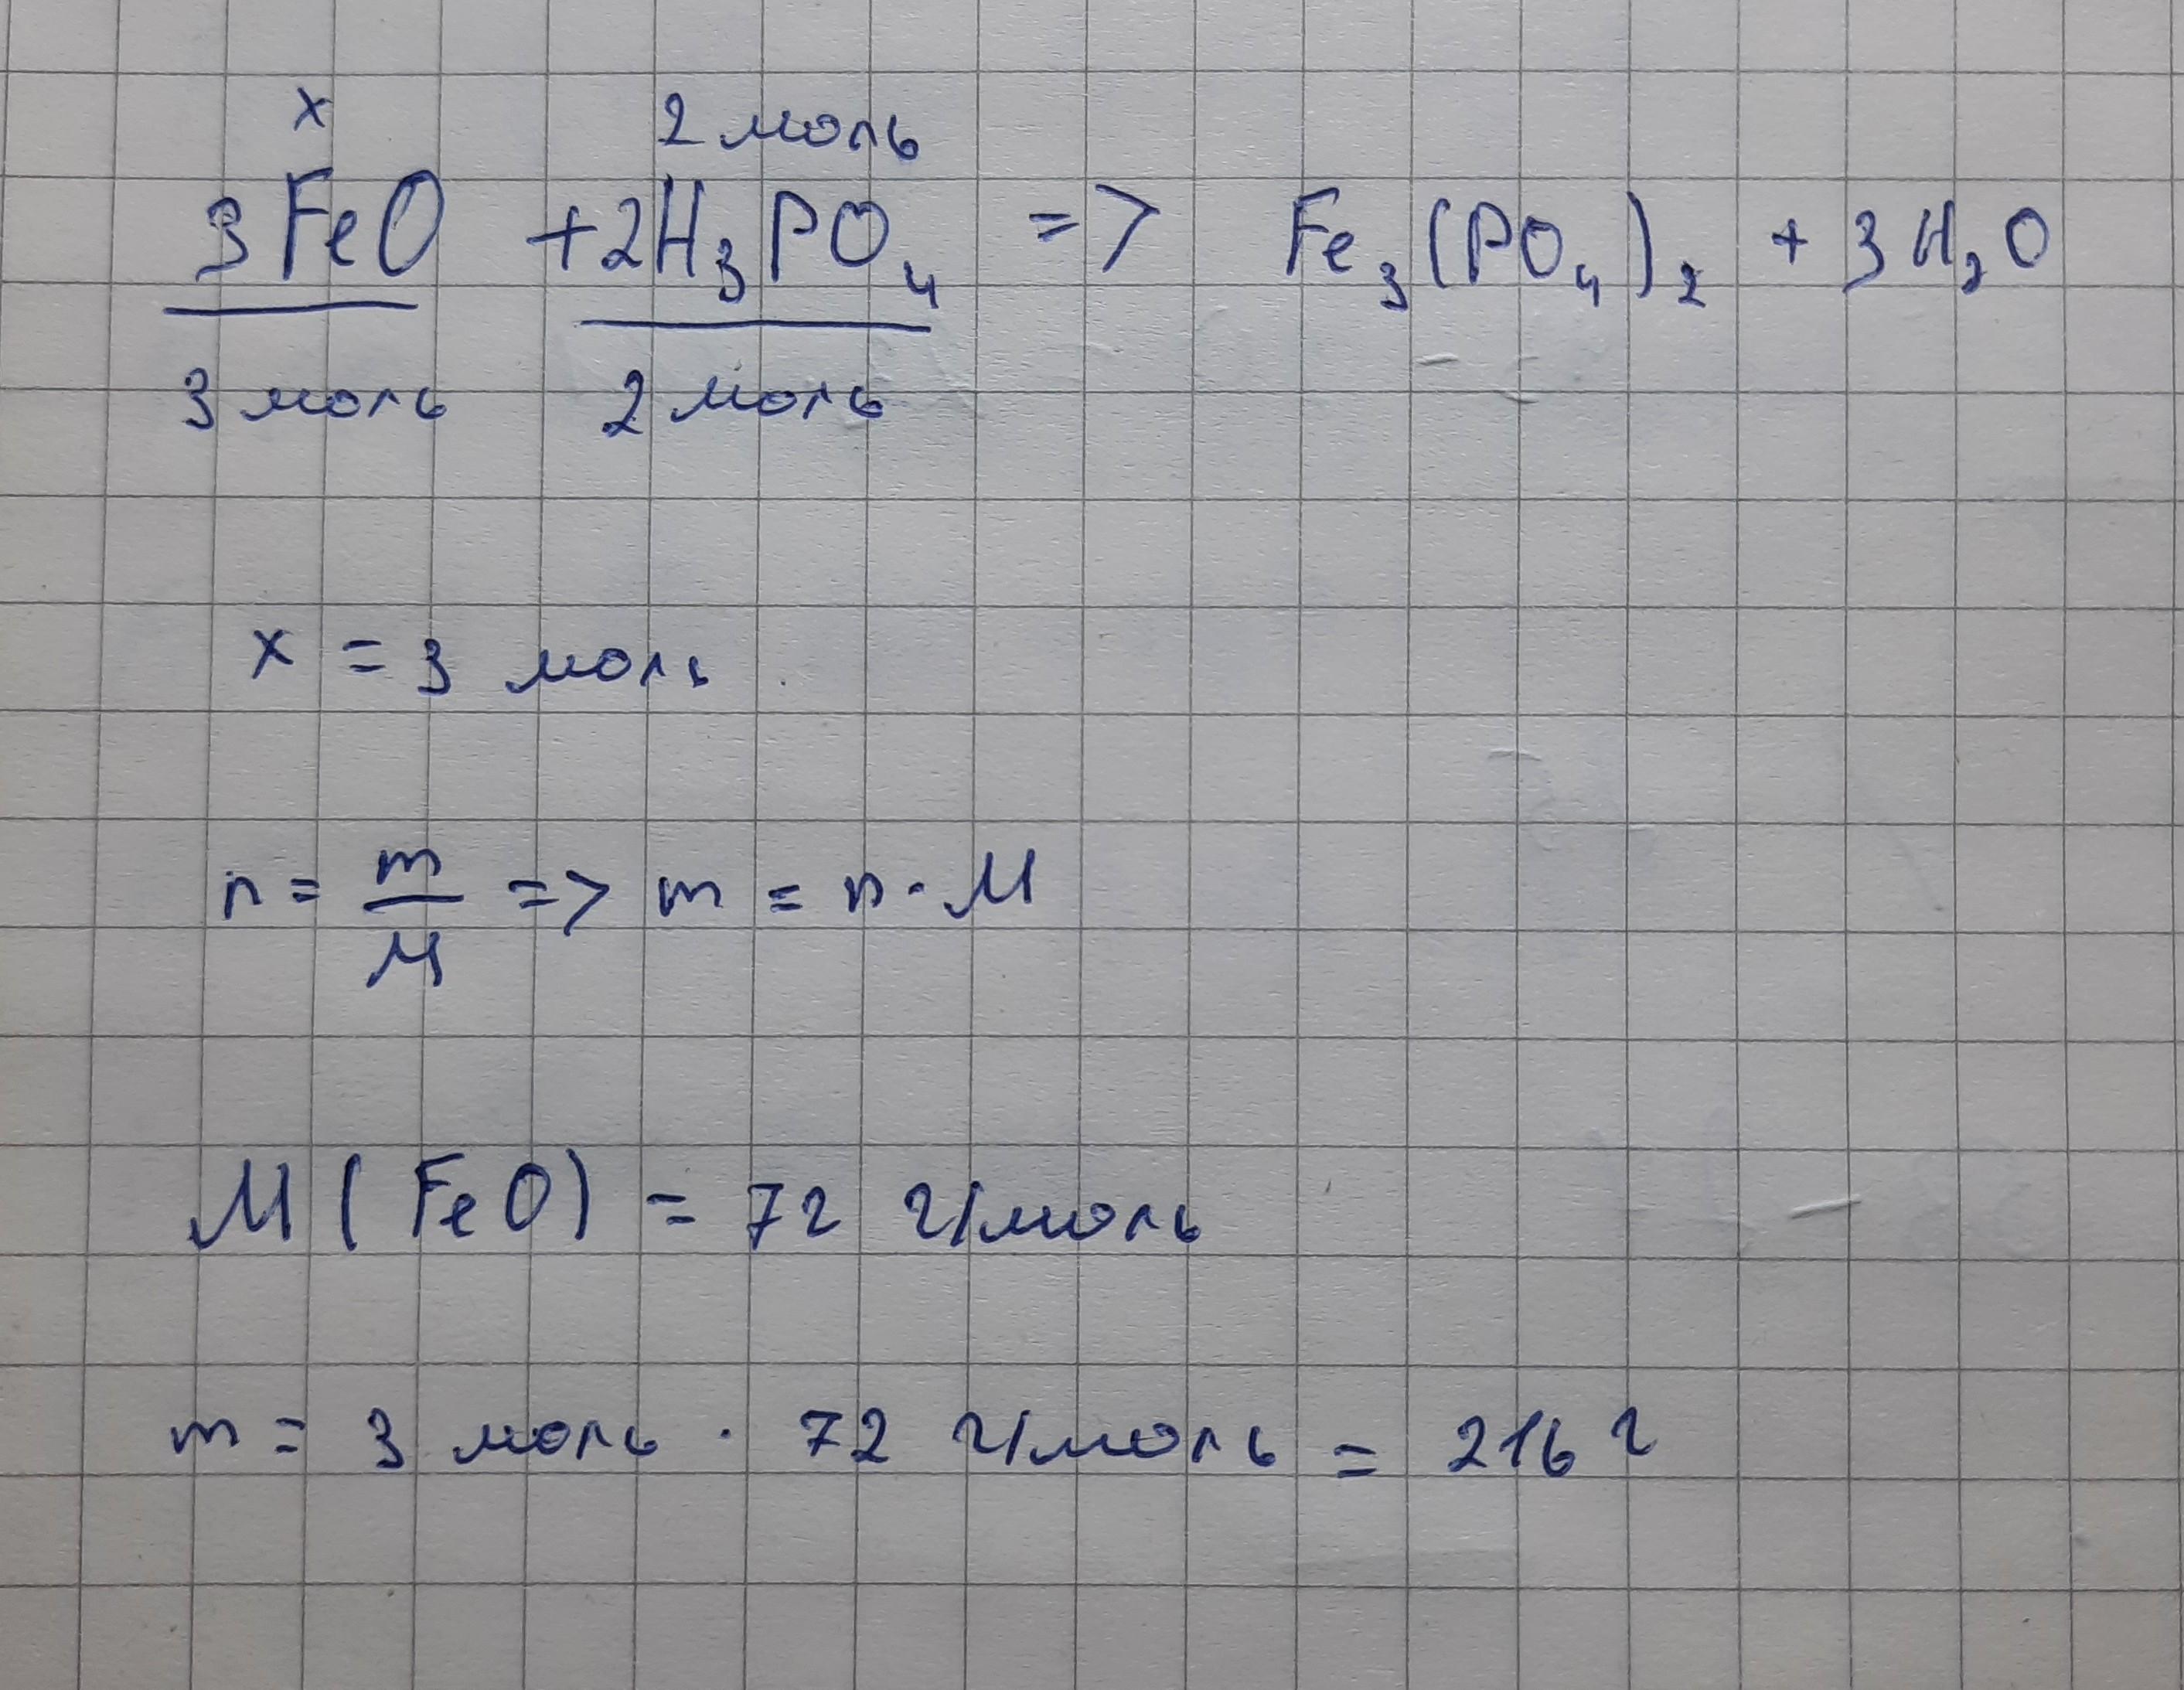 x 2 моль
3FeO + 2H₃PO₄ => Fe₃(PO₄)₂ + 3H₂O
3 моль 2 моль
x = 3 моль
n = m/M => m = n · M
M(FeO) = 72 г/моль
m = 3 моль · 72 г/моль = 216 г